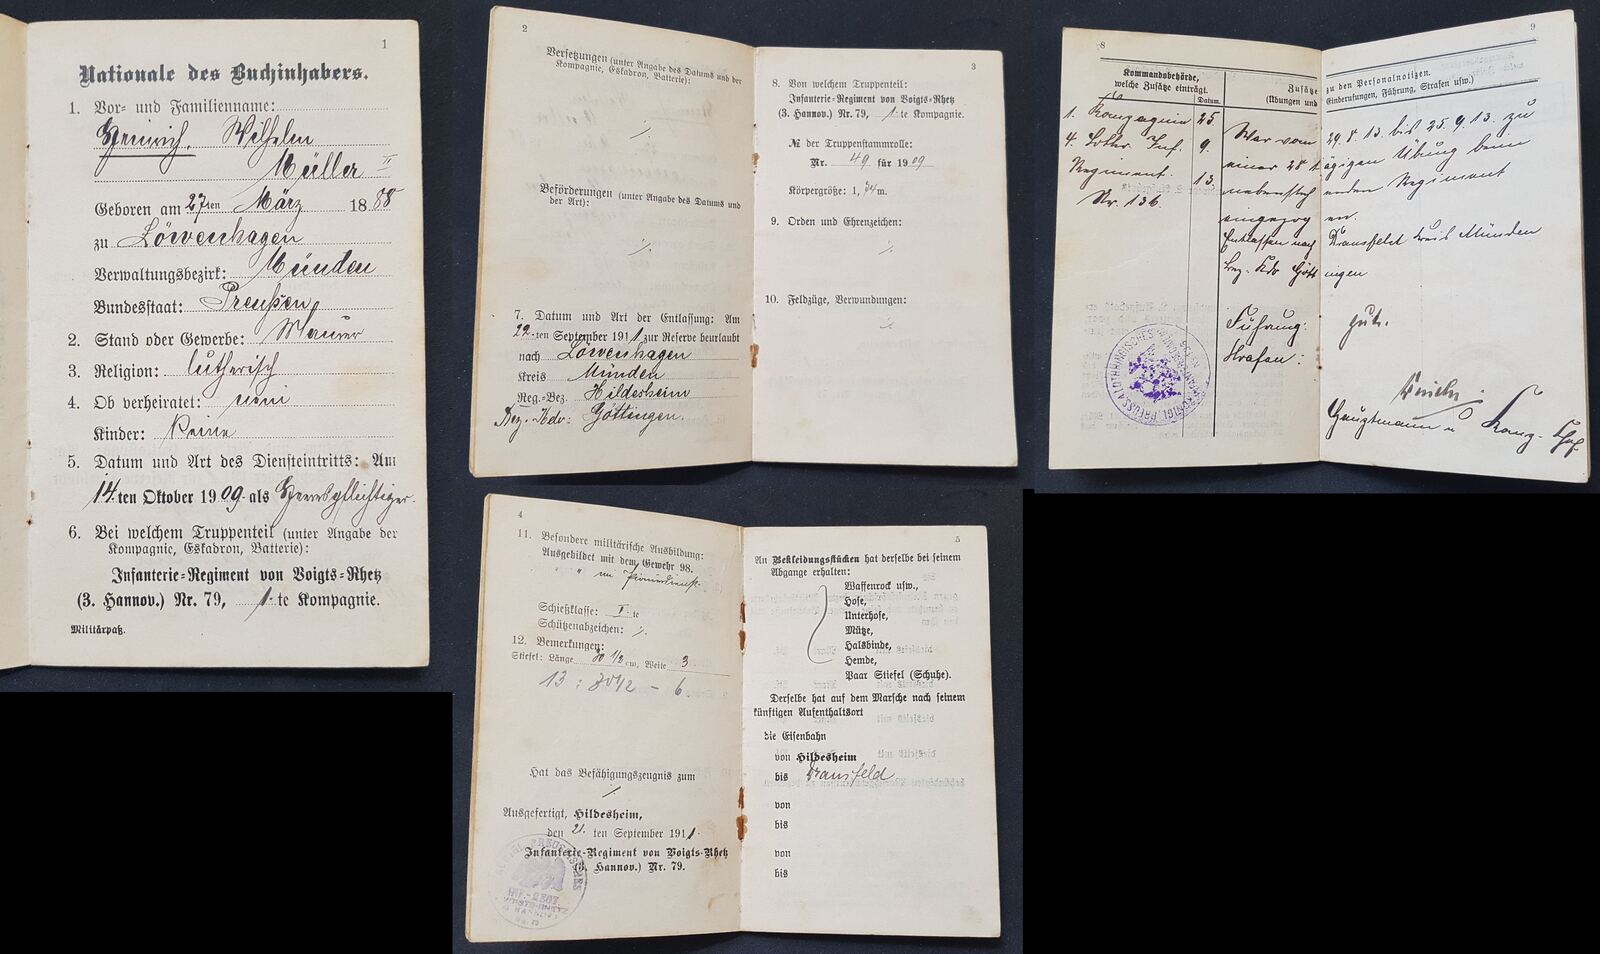 1
Nationale des Buchinhabers.
1. Vor- und Familienname:
Heinrich, Wilhelm
Müller II
Geboren am 27ten März 1888
zu Löwenhagen
Verwaltungsbezirk: Münden
Bundesstaat: Preußen
2. Stand oder Gewerbe: Maurer
3. Religion: lutherisch
4. Ob verheiratet: nein
Kinder: Keine
5. Datum und Art des Diensteintritts: Am
14.ten Oktober 1909 als Heerespflichtiger.
6. Bei welchem Truppenteil (unter Angabe der
Kompagnie, Eskadron, Batterie):
Infanterie-Regiment von Voigts-Rhetz
(3. Hannov.) Nr. 79, 1.te Kompagnie.
Militärpaß.
2
Versetzungen (unter Angabe des Datums und der
Kompagnie, Eskadron, Batterie):
./.
Beförderungen (unter Angabe des Datums und
der Art):
./.
7. Datum und Art der Entlassung: Am
22.ten September 1911 zur Reserve beurlaubt
nach Löwenhagen
Kreis Münden
Reg.-Bez. Hildesheim
Bez.-Kdo: Göttingen.
3
8. Von welchem Truppenteil:
Infanterie-Regiment von Voigts-Rhetz
(3. Hannov.) Nr. 79, 1.te Kompagnie.
№ der Truppenstammrolle:
Nr. 49 für 1909
Körpergröße: 1,74 m.
9. Orden und Ehrenzeichen:
./.
10. Feldzüge, Verwundungen:
./.
4
11. Besondere militärische Ausbildung:
Ausgebildet mit dem Gewehr 98.
" " im Pionierdienst.
Schießklasse: I.te
Schützenabzeichen: ./.
12. Bemerkungen:
Stiefel: Länge 30 1/2 cm, Weite 3
13 : 30 1/2 – 6.
Hat das Befähigungszeugnis zum
./.
Ausgefertigt, Hildesheim,
den 21. ten September 1911.
Infanterie-Regiment von Voigts-Rhetz
(3. Hannov.) Nr. 79.
5
An Bekleidungsstücken hat derselbe bei seinem
Abgange erhalten:
Waffenrock usw.,
Hose,
Unterhose,
Mütze,
Halsbinde,
Hemde,
Paar Stiefel (Schuhe).
Derselbe hat auf dem Marsche nach seinem
künftigen Aufenthaltsort
die Eisenbahn
von Hildesheim
bis Dransfeld
von
bis
von
bis
8
9
Kommandobehörde,
welche Zusätze einträgt.
Datum.
Zusätze zu den Personalnotizen.
(Übungen und Einberufungen, Führung, Strafen usw.)
1. Kompagnie 25. War vom 29.8.13. bis 25.9.13. zu
4. Lothr. Inf. 9. einer 28 tägigen Übung beim
Regiment 13. nebensteh enden Regiment
Nr. 136. eingezog en.
Entlassen nach Dransfeld Kreis Münden
Bez. Kdo Gött ingen
Führung: gut.
Strafen:
Hauptmann u. Komp.-Chef